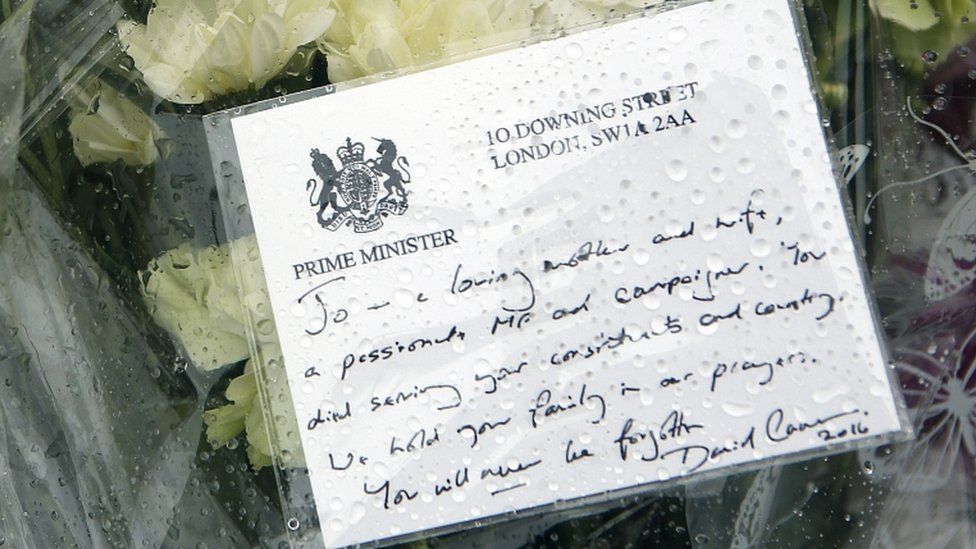 10 DOWNING STREET
LONDON, SW1A 2AA
PRIME MINISTER
Jo — a loving mother and wife,
a passionate MP and campaigner. You
died serving your constituents and country.
We hold your family in our prayers.
You will never be forgotten
David Cameron
2016